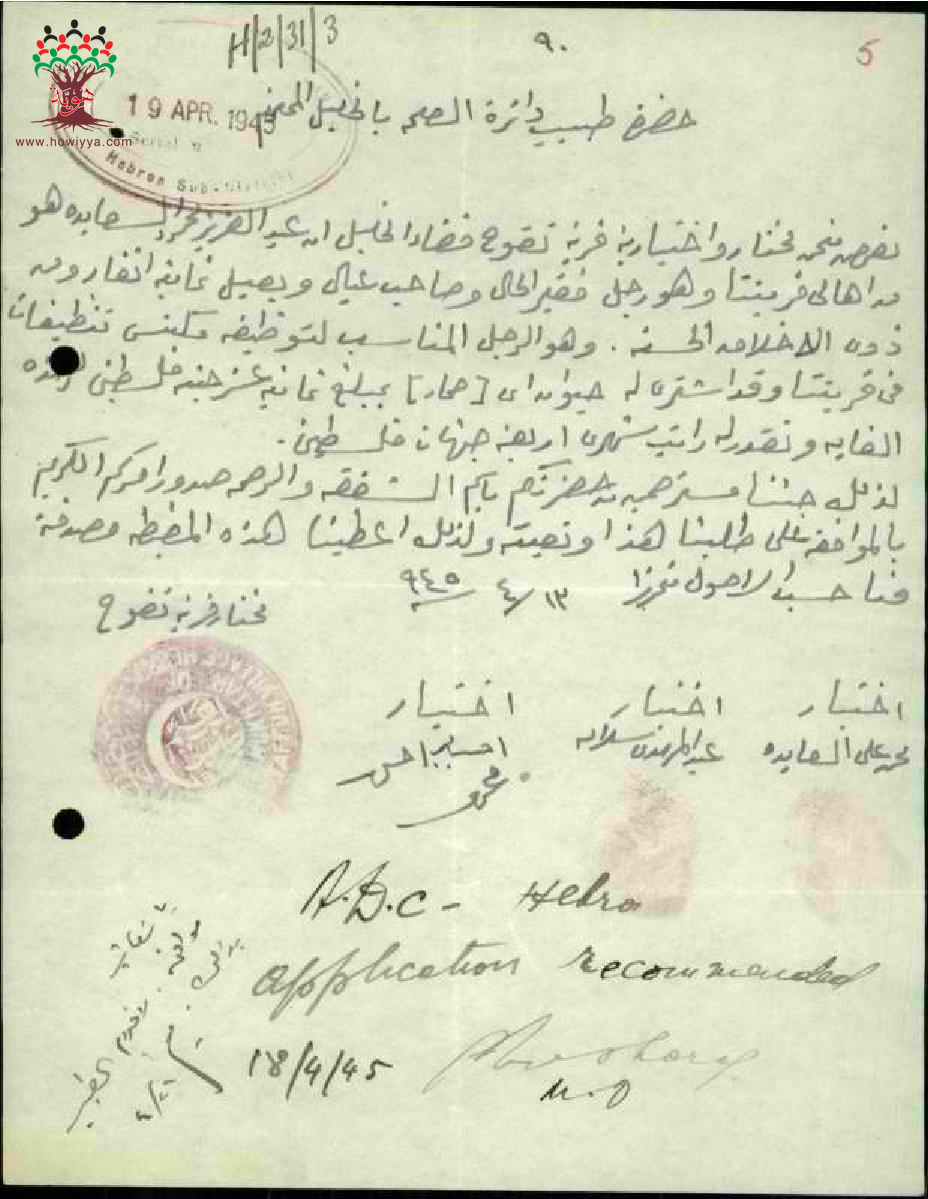 H/2/31/3
٩٠
5
19 APR. 1945
Serial
Hebron Sub-District
هوية
www.howiyya.com
حضرة طبيب دائرة الصحه بالخليل المحترم
نعرض نحن مختار واختيارية قرية تفوح قضاء الخليل ان عبد العزيز السعايده هو
من اهالي قريتنا وهو رجل فقير الحال وصاحب عيال ويعيل ثمانية انفار ومن
ذوي الاخلاق الحسنه . وهو الرجل المناسب لتوظيفه مكنس تنظيفات
في قريتنا وقد اشترى له حيوان اي [حمار] بمبلغ ثمانية عشر جنيه فلسطيني لهذه
الغايه ونقدر له راتب شهري اربعة جنيهات فلسطيني.
لذلك جئنا مسترحمين من حضرتكم باسم الشفقه والرحمه صدور امركم الكريم
بالموافقه على طلبنا هذا وتعينه ولذلك اعطينا هذه المضبطه مصدقة
منا حسب الاصول تحريرا ١٣/٤/٩٤٥
مختار قرية تفوح
اختيار اختيار اختيار
محمد علي السعايده عبد المهدي سلامه احمد
A.D.C - Hebron
application recommended
18/4/45
M.O